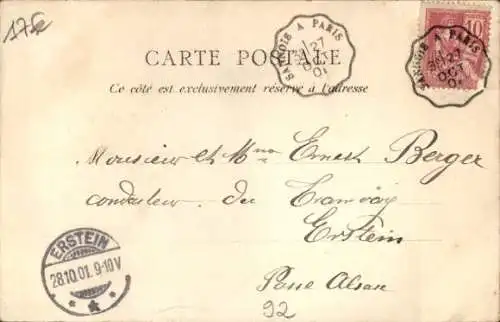 175c
SANNOIS A PARIS
27
OCT
01
10
SANNOIS A PARIS
27
OCT
01
CARTE POSTALE
Ce côté est exclusivement réservé à l'adresse
Monsieur et Mme Ernest Berger
conducteur du Tramway
Erstein
Alsace
92
ERSTEIN
28.10.01. 9-10V